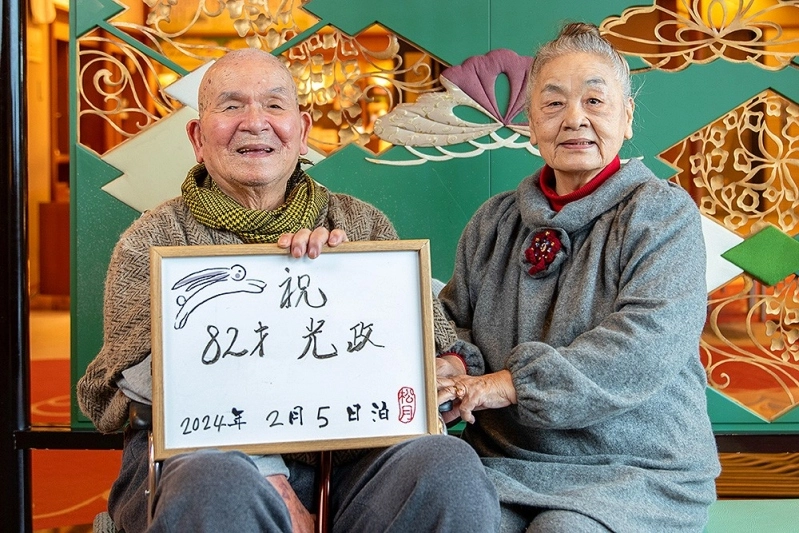 祝
82才 光政
2024年 2月5日泊
松月